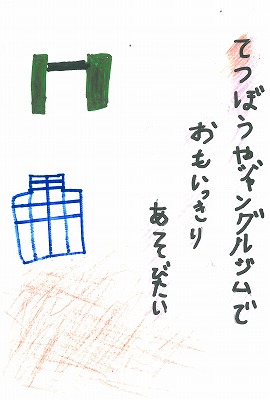 てつぼうやジャングルジムで
おもいっきり
あそびたい